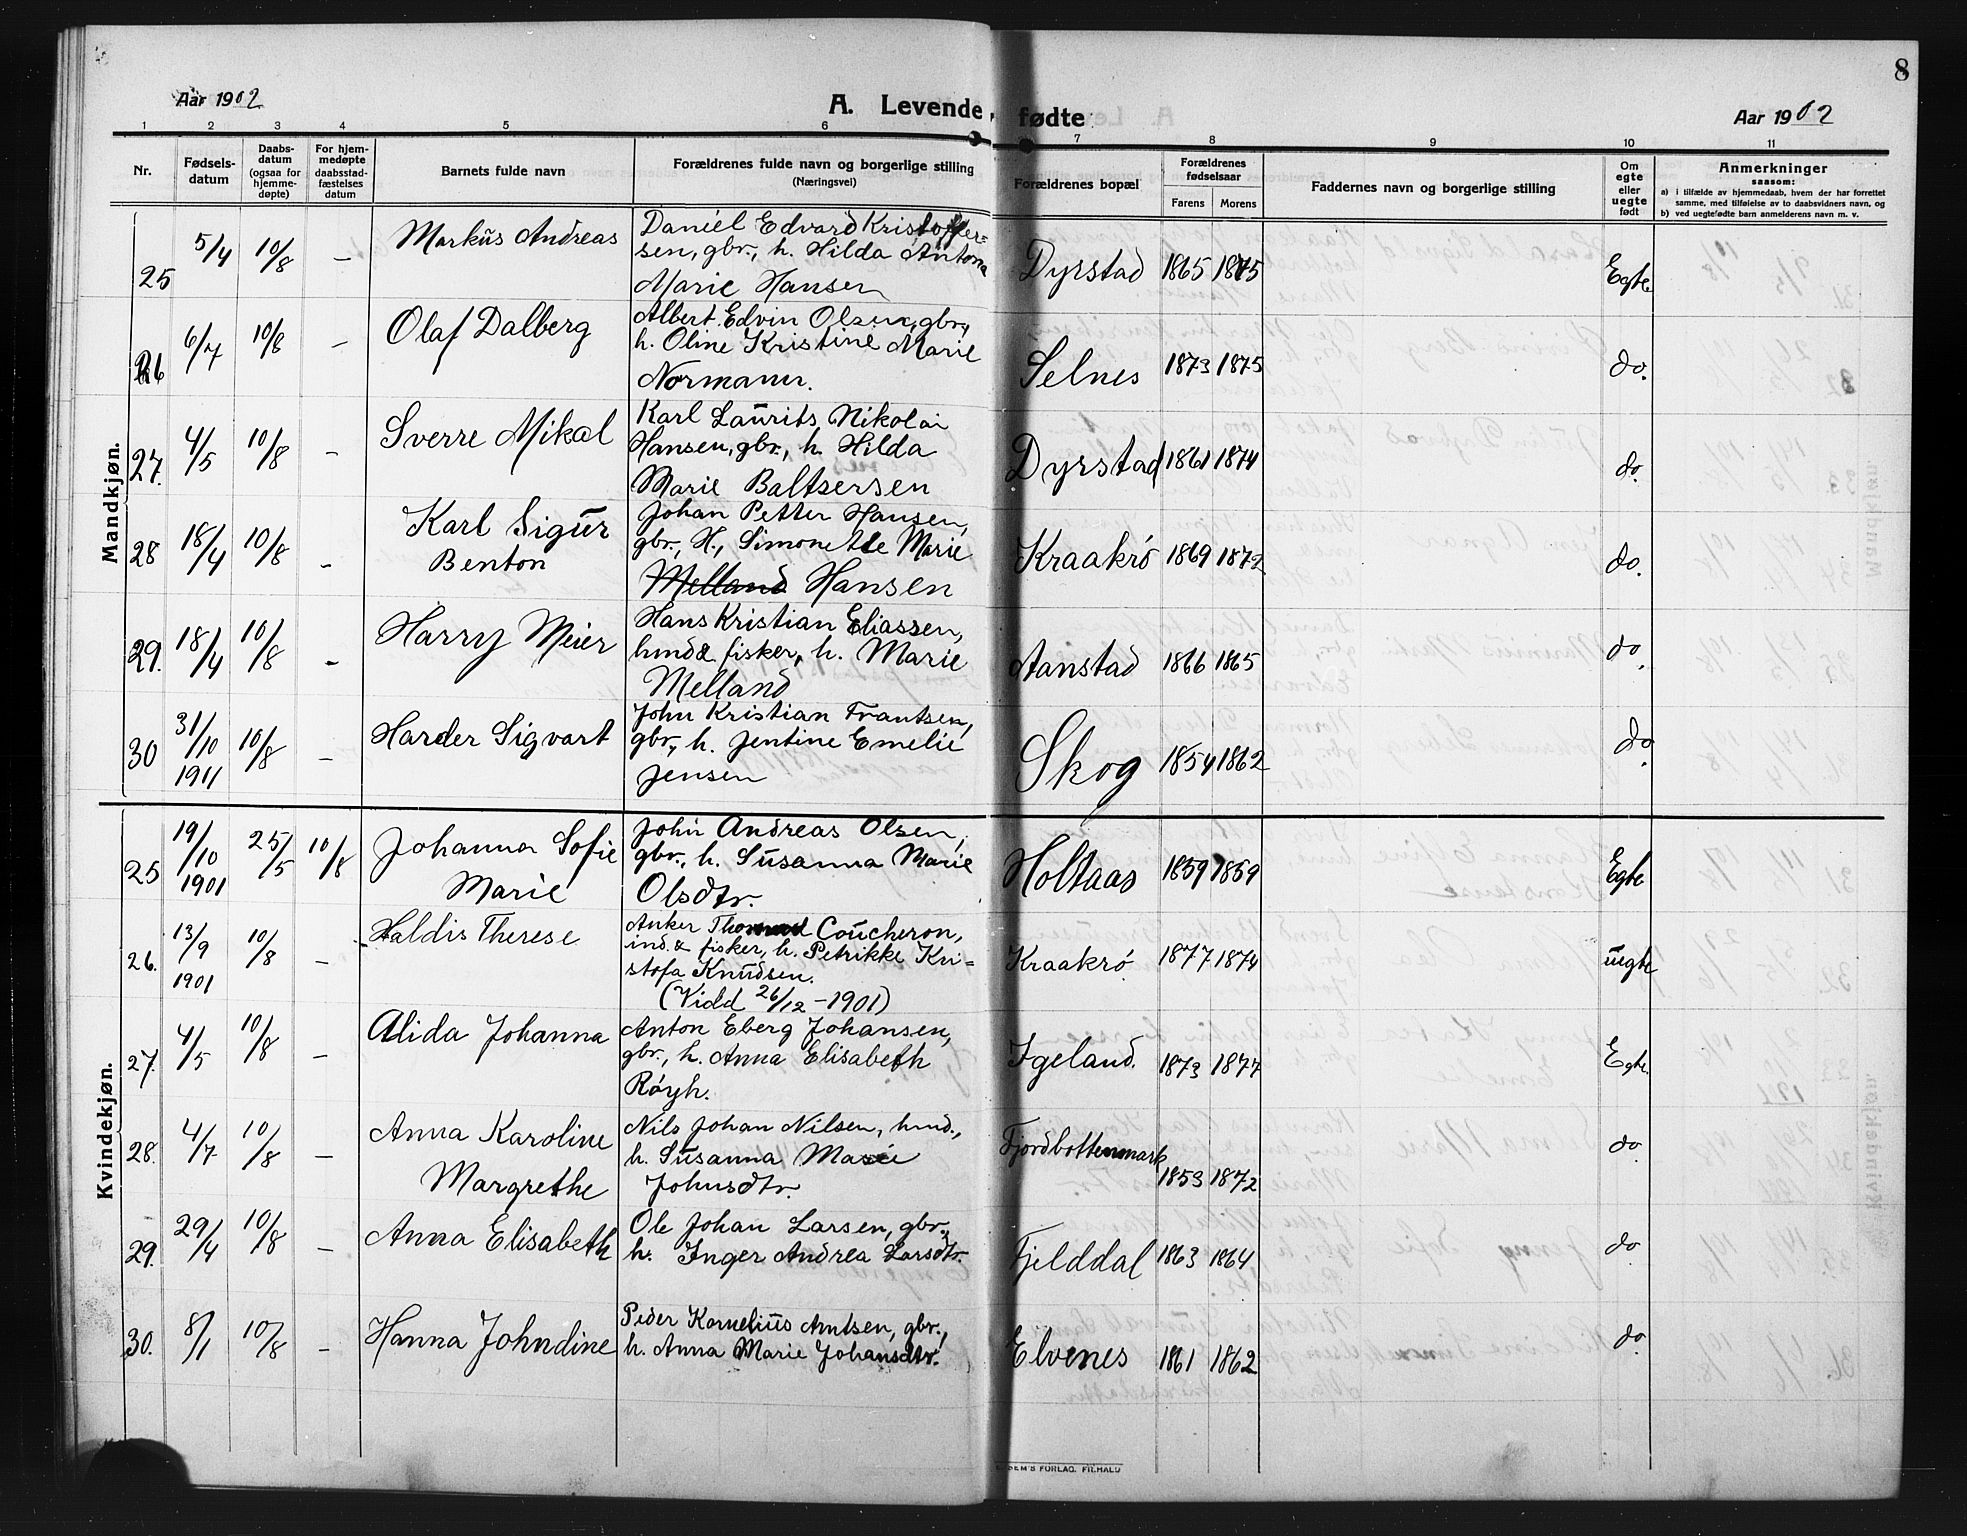 8
Aar 1902
A. Levende, fødte
Aar 1902
1 2 3 4 5 6 7 8 9 10 11
Nr.
Fødsels-
datum
Daabs-
datum
(ogsaa for
hjemme-
døpte)
For hjem-
medøpte
daabsstad-
fæstelses
datum
Barnets fulde navn
Forældrenes fulde navn og borgerlige stilling
(Næringsvei)
Forældrenes bopæl
Forældrenes
fødselsaar
Farens Morens
Faddernes navn og borgerlige stilling
Om
egte
eller
uegte
født
Anmerkninger
saasom:
a) i tilfælde av hjemmedaab, hvem der har forrettet
samme, med tilføielse av to daabsvidners navn, og
b) ved uegtefødte barn anmelderens navn m. v.
Mandkjøn.
25 5/4 10/8 – Markus Andreas Daniel Edvard Kristoffer-
sen, gbr., h. Hilda Antona
Marie Hansen Dyrstad 1865 1875 Egte
26 6/7 10/8 – Olaf Dalberg Albert Edvin Olsen, gbr.,
h. Oline Kristine Marie
Normann. Selnes 1873 1875 do.
27. 4/5 10/8 – Sverre Mikal Karl Laurits Nikolai
Hansen, gbr., h. Hilda
Marie Baltsersen Dyrstad 1861 1874 do.
28 18/4 10/8 – Karl Sigur
Benton Johan Petter Hansen,
gbr., H., Simonette Marie
Melland Hansen Kraakrö 1869 1872 do.
29. 18/4 10/8 – Harry Meier Hans Kristian Eliassen,
hmd & fisker, h. Marie
Melland Aanstad 1866 1865 do.
30 31/10 1911 10/8 – Harder Sigvart John Kristian Frantsen,
gbr., h. Jentine Emelie
Jensen Skog 1854 1862 do.
Kvindekjøn.
25 19/10 1901 25/5 10/8 Johanna Sofie
Marie John Andreas Olsen,
gbr., h. Susanna Marie
Olsdtr. Holtaas 1859 1869 Egte
26. 13/9 1901 10/8 – Haldis Therese Anker Coucheron,
ind. & fisker, h. Petrikke Kri-
stofa Knudsen.
(Vidd 26/12 – 1901) Kraakrö 1877 1874 uegte
27. 4/5 10/8 – Alida Johanna Anton Eberg Johansen,
gbr., h. Anna Elisabeth
Röyh. Igeland. 1873 1877 Egte.
28. 4/7 10/8 – Anna Karoline
Margrethe Nils Johan Nilsen, hmd.,
h. Susanna Marie
Johnsdtr. Fjordbottenmark 1853 1872 do
29. 29/4 10/8 – Anna Elisabeth Ole Johan Larsen, gbr.,
h. Inger Andrea Larsdtr. Fjelddal 1863 1864 do
30. 8/1 10/8 – Hanna Johndine Peder Kornelius Arntsen, gbr.,
h. Anna Marie Johansdtr. Elvenes 1861 1862 do
SEM'S FORLAG, FR.HALD